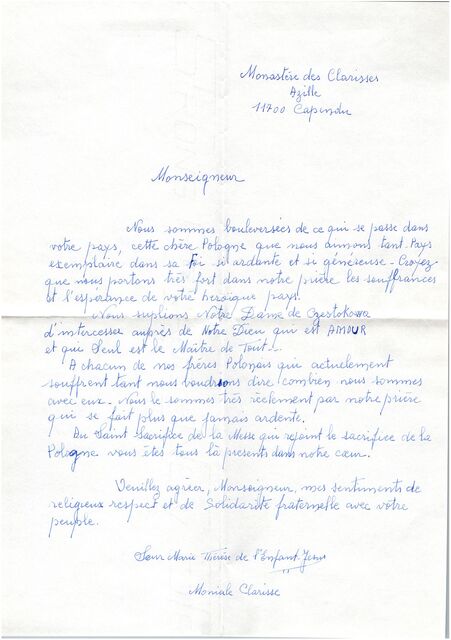 Monastère des Clarisses
Azille
11700 Capendu
Monseigneur
Nous sommes bouleversées de ce qui se passe dans
votre pays, cette chère Pologne que nous aimons tant. Pays
exemplaire dans sa Foi si ardente et si généreuse - Croyez
que nous portons très fort dans notre prière les souffrances
et l'espérance de votre héroïque pays.
Nous suplions Notre Dame de Czestokowa
d'intercesser auprès de Notre Dieu qui est AMOUR
et qui Seul est le Maître de Tout -
A chacun de nos frères Polonais qui actuellement
souffrent tant nous voudrions dire combien nous sommes
avec eux - Nous le sommes très réelement par notre prière
qui se fait plus que jamais ardente.
Au Saint Sacrifice de la Messe qui rejoint le sacrifice de la
Pologne vous êtes tous là présents dans notre cœur.
Veuillez agréer, Monseigneur, mes sentiments de
religieux respect et de Solidarité fraternelle avec votre
peuple.
Sœur Marie Thérèse de l'Enfant-Jésus
Moniale Clarisse